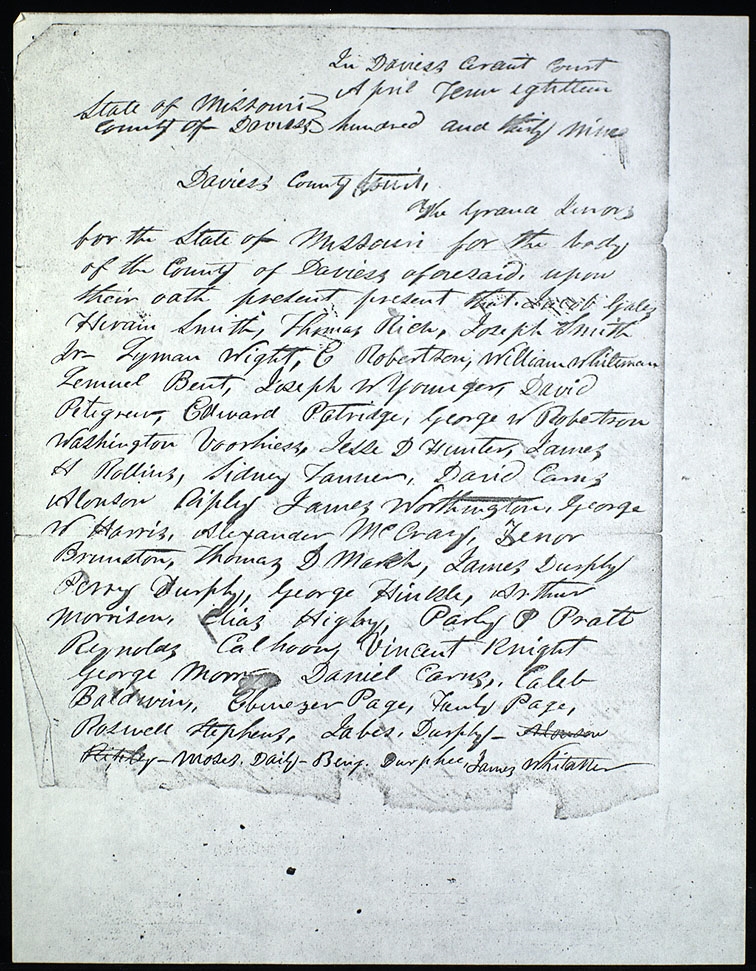 In Daviess Circuit Court
April Term eighteen
State of Missouri
County of Daviess hundred and thirty nine
Daviess County
The Grand Jurors
for the State of Missouri for the body
of the County of Daviess aforesaid, upon
their oath present present that Jacob Gates
Hiram Smith, Thomas Rich, Joseph Smith
Jr Lyman Wight, E Robertson, William Whitman
Lemuel Bent, Joseph W Younger, David
Petegrew, Edward Patridge, George W Robertson
Washington Voorhies, Jesse D Hunter, James
H Rollins, Sidney Tanner, David Carns
Alonson Ripley James Worthington, George
W Harris, Alexander McCray, Tenor
Brunston, Thomas D Marsh, James Durphy
Perry Durphy, George Hinkle, Arthur
Morrisen, Elias Higby, Parly P Pratt
Reynolds Calhoon, Vincant Knight
George Morry Daniel Carns, Caleb
Baldwin, Ebenezer Page, Page,
Roswell Stephens, Jabes, Durphy - Alonson
Ripley - Moses. Daily - Benj. Durphee, James Whitaker